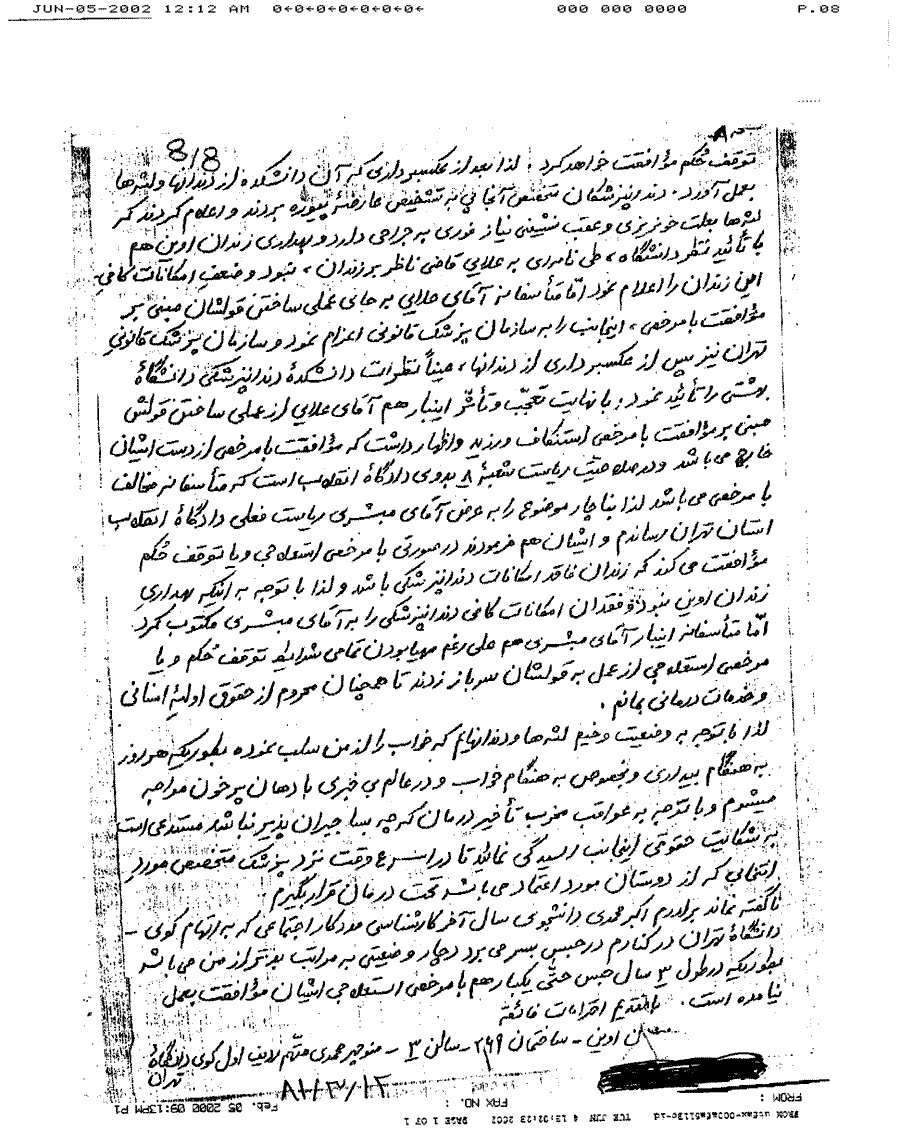 JUN-05-2002 12:12 AM 0←0←0←0←0←0←0← 000 000 0000 P.08
8/8
توقف حُکم مؤافقت خواهد کرد. لذا بعد از عکسبرداری که آن دانشکده از دندانها و لثه‌ها
بعمل آورد، دندانپزشکان متخصص آنجا پی به تشخیص عارضهٔ پیوره بردند و اعلام کردند که
لثه‌ها بعلت خونریزی و عقب نشینی نیاز فوری به جراحی دارد و بهداری زندان اوین هم
با تأئید نظر دانشگاه، طی نامه‌ای به علایی قاضی ناظر بر زندان، نبود و ضعف امکانات کافی
این زندان را اعلام نمود امّا متأسفانه آقای علایی به جای عملی ساختن قولشان مبنی بر
مؤافقت با مرخصی، اینجانب را به سازمان پزشک قانونی اعزام نمود و سازمان پزشک قانونیِ
تهران نیز پس از عکسبرداری از دندانها، عیناً نظرات دانشکدهٔ دندانپزشکی دانشگاهٔ
بهشتی را تأئید نمود؛ با نهایت تعجّب و تأثر اینبار هم آقای علایی از عملی ساختن قولش
مبنی بر مؤافقت با مرخصی استنکاف ورزید و اظهار داشت که مؤافقت با مرخصی از دست ایشان
خارج می‌باشد و در صلاحیّت ریاست شعبهٔ ۸ بدوی دادگاهٔ انقلاب است که متأسفانه مخالف
با مرخصی می‌باشد لذا بناچار موضوع را به عرض آقای مبشری ریاست فعلی دادگاهٔ انقلاب
استان تهران رساندم و ایشان هم فرمودند در صورتی با مرخصی استعلاجی و یا توقف حُکم
مؤافقت می‌کند که زندان فاقد امکانات دندانپزشکی باشد و لذا با توجه به اینکه بهداریِ
زندان اوین نبود و فقدان امکانات کافی دندانپزشکی را به آقای مبشری مکتوب کرد
امّا متأسفانه اینبار آقای مبشری هم علی رغم مهیا بودن تمامی شرایط توقف حُکم و یا
مرخصی استعلاجی از عمل به قولشان سر باز زدند تا همچنان محروم از حقوق اولیهٔ انسانی
و خدمات درمانی بمانم.
لذا با توجه به وضعیت وخیم لثه‌ها و دندانهایم که خواب را از من سلب نموده بطوریکه هر روز
به هنگام بیداری و بخصوص به هنگام خواب و در عالم بی خبری با دهان پر خون مواجه
میشوم و با توجه به عواقب مخرب تأخیر درمان که چه بسا جبران پذیر نباشد مستدعی است
به شکایت حقوقی اینجانب رسیدگی نمائید تا در اسرع وقت نزد پزشک متخصص مورد
انتخابی که از دوستان مورد اعتماد می‌باشد تحت درمان قرار بگیرم.
ناگفته نماند برادرم اکبر محمدی دانشجوی سال آخر کارشناسی مددکار اجتماعی که به اتهام کوی
دانشگاهٔ تهران در کنارم در حبس بسر می‌برد دچار وضعیتی به مراتب بدتر از من می‌باشد
بطوریکه در طول ۳ سال حبس حتّی یکبار هم با مرخصی استعلاجی ایشان مؤافقت بعمل
نیامده است. با تقدیم احترامات فائقه
اوین - ساختمان ۲۶۹ - سالن ۳ - منوچهر محمدی متّهم ردیف اول کوی دانشگاهٔ
تهران
FROM : FAX NO. : Feb. 05 2000 09:13PM P1
TUE JUN 4 2002 PAGE 1 OF 1